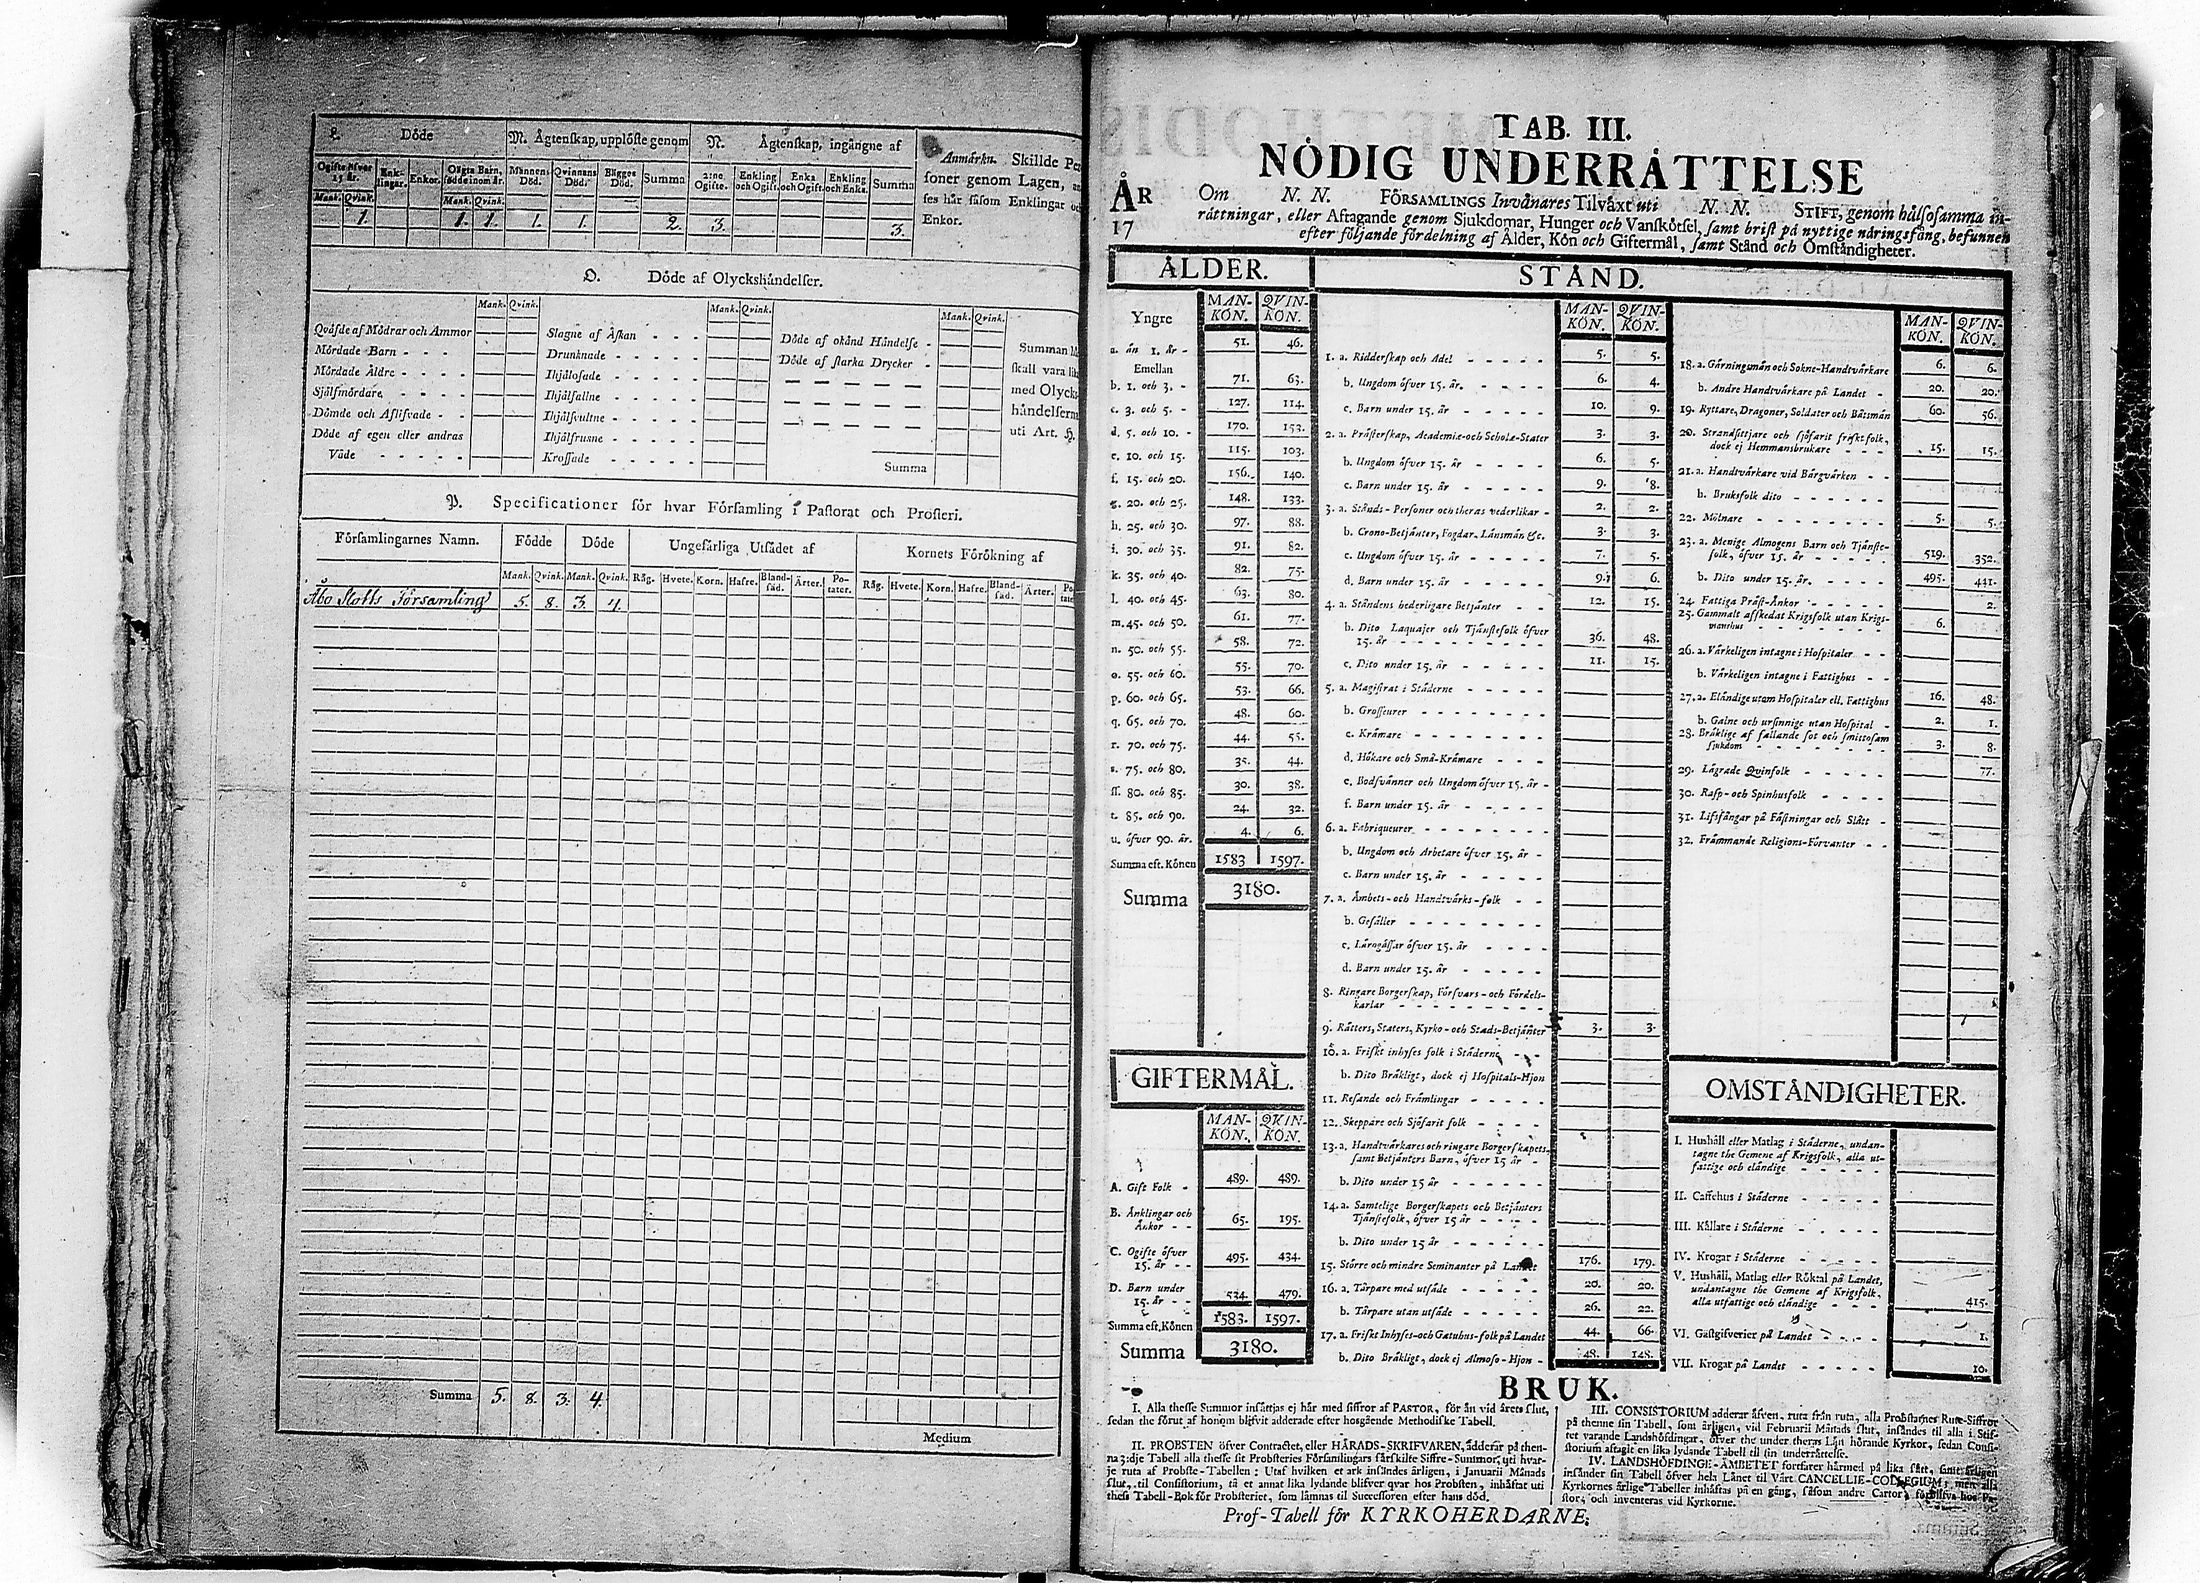 L. Döde
M. Ägtenskap, upplöste genom
N. Ägtenskap, ingångne af
Ogifte öfver 15 år. Enklingar. Enkor. Oägta Barn, födde inom år. Mannens Död. Qvinnans Död. Bägges Död. Summa 2:ne Ogifte. Enkling och Ogift. Enka och Ogift. Enkling och Enka. Summa
Mank. Qvink. Mank. Qvink.
1. 1. 1. 1. 1. 2. 3. 3.
Anmärkn. Skillde Per
soner genom Lagen, an
ses här såsom Enklingar oc
Enkor.
O. Döde af Olyckshändelser.
Mank. Qvink. Mank. Qvink. Mank. Qvink.
Qväfde af Mödrar och Ammor
Mördade Barn - - -
Mördade Äldre - - -
Sjelfmördare - - -
Dömde och Aflifvade - -
Döde af egen eller andras
Våde - - - - -
Slagne af Åskan - - -
Drunknade - - - -
Ihjälosade - - - -
Ihjälfallne - - - -
Ihjälsvultne - - - -
Ihjälfrusne - - - -
Krossade - - - - -
Döde af okänd Händelse -
Döde af starka Drycker -
Summa
Summan h
skall vara lik
med Olycks
händelserna
uti Art. H.
P. Specificationer för hvar Församling i Pastorat och Prosteri.
Församlingarnes Namn. Födde Döde Ungefärliga Utsädet af Kornets Förökning af
Mank. Qvink. Mank. Qvink. Råg. Hvete. Korn. Hafre. Blandsäd. Ärter. Potater. Råg. Hvete. Korn. Hafre. Blandsäd. Ärter. Potater.
Åbo Slotts Församling 5. 8. 3. 4.
Summa 5. 8. 3. 4.
Medium
TAB. III.
NÖDIG UNDERRÄTTELSE
ÅR 17
Om N. N. FÖRSAMLINGS Invånares Tilväxt uti N. N. STIFT, genom hälsosamma in-
rättningar, eller Aftagande genom Sjukdomar, Hunger och Vanskötsel, samt brist på nyttige näringsfång, befunnen
efter följande fördelning af Ålder, Kön och Giftermål, samt Stånd och Omständigheter.
ÅLDER.
MAN-KÖN. QVIN-KÖN.
Yngre
a. än 1. år - 51. 46.
Emellan
b. 1. och 3. - 71. 63.
c. 3. och 5. - 127. 114.
d. 5. och 10. - 170. 153.
e. 10. och 15. 115. 103.
f. 15. och 20. 156. 140.
g. 20. och 25. 148. 133.
h. 25. och 30. 97. 88.
i. 30. och 35. 91. 82.
k. 35. och 40. 82. 75.
l. 40. och 45. 63. 80.
m. 45. och 50. 61. 77.
n. 50. och 55. 58. 72.
o. 55. och 60. 55. 70.
p. 60. och 65. 53. 66.
q. 65. och 70. 48. 60.
r. 70. och 75. 44. 55.
s. 75. och 80. 35. 44.
ss. 80. och 85. 30. 38.
t. 85. och 90. 24. 32.
u. öfver 90. år. 4. 6.
Summa eft. Könen 1583 1597.
Summa 3180.
GIFTERMÅL.
MAN-KÖN. QVIN-KÖN.
A. Gift Folk - 489. 489.
B. Änklingar och Änkor - - 65. 195.
C. Ogifte öfver 15. år - - 495. 434.
D. Barn under 15. år - - 534. 479.
Summa eft. Könen 1583. 1597.
Summa 3180.
STÅND.
MAN-KÖN. QVIN-KÖN.
1. a. Ridderskap och Adel - - - - - 5. 5.
b. Ungdom öfver 15. år. - - - - 6. 4.
c. Barn under 15. år - - - - - 10. 9.
2. a. Prästerskap, Academiæ-och Scholæ-Stater 3. 3.
b. Ungdom öfver 15. år - - - - 6. 5.
c. Barn under 15. år - - - - - 9. 8.
3. a. Stånds-Personer och theras vederlikar - 2. 2.
b. Crono-Betjänter, Fogdar, Länsmän &c. 3. 3.
c. Ungdom öfver 15. år - - - - 7. 5.
d. Barn under 15. år - - - - - 9. 6.
4. a. Ståndens hederligare Betjänter - - 12. 15.
b. Dito Laquajer och Tjänstefolk öfver
15. år - - - - - - - 36. 48.
c. Dito under 15. år - - - - - 11. 15.
5. a. Magistrat i Städerne - - - - -
b. Grosseurer - - - - - - -
c. Krämare - - - - - - -
d. Hökare och Små-Krämare - - - -
e. Bodsvänner och Ungdom öfver 15. år -
f. Barn under 15. år - - - - -
6. a. Fabriqueurer - - - - - - -
b. Ungdom och Arbetare öfver 15. år -
c. Barn under 15. år - - - - -
7. a. Ämbets-och Handtvärks-folk - -
b. Gesäller - - - - - - -
c. Lärogåssar öfver 15. år - - - -
d. Barn under 15. år - - - - -
8. Ringare Borgerskap, Försvars-och Fördels-
karlar - - - - - - - -
9. Rätters, Staters, Kyrko-och Stads-Betjänter 3. 3.
10. a. Friskt inhyses folk i Städerne - -
b. Dito Bräkligt, dock ej Hospitals-Hjon
11. Resande och Främlingar - - - -
12. Skeppare och Sjöfarit folk - - - -
13. a. Handtvärkares och ringare Borgerskapets
samt Betjänters Barn, öfver 15 år -
b. Dito under 15 år - - - - -
14. a. Samtelige Borgerskapets och Betjänters
Tjänstefolk, öfver 15 år - - - -
b. Dito under 15 år - - - - - -
15. Större och mindre Seminanter på Landet 176. 179.
16. a. Tärpare med utsäde - - - - - 20. 20.
b. Tärpare utan utsäde - - - - 26. 22.
17. a. Friskt Inhyses-och Gatuhus-folk på Landet 44. 66.
b. Dito Bräkligt, dock ej Almoso-Hjon - 48. 148.
MAN-KÖN. QVIN-KÖN.
18. a. Gärningsmän och Sokne-Handtvärkare 6. 6.
b. Andre Handtvärkare på Landet - 20. 20.
19. Ryttare, Dragoner, Soldater och Båtsmän 60. 56.
20. Strandsittjare och sjöfarit friskt folk,
dock ej Hemmansbrukare - - - 15. 15.
21. a. Handtvärkare vid Bärgvärken - -
b. Bruksfolk dito - - - - - -
22. Mölnare - - - - - - - 5. 5.
23. a. Menige Almogens Barn och Tjänste-
folk, öfver 15. år - - - - - 519. 352.
b. Dito under 15. år. - - - - - 495. 441.
24. Fattiga Präst-Änkor - - - - - 2.
25. Gammalt afskedat Krigsfolk utan Krigs-
manshus - - - - - - - 6.
26. a. Värkeligen intagne i Hospitaler - -
b. Värkeligen intagne i Fattighus - -
27. a. Eländige utom Hospitaler ell. Fattighus 16. 48.
b. Galne och ursinnige utan Hospital - 2. 1.
28. Bräklige af fallande sot och smittosam
sjukdom - - - - - - - 3. 8.
29. Lägrade Qvinfolk - - - - - 77.
30. Rasp-och Spinhusfolk - - - -
31. Lifsfångar på Fästningar och Slått -
32. Främmande Religions-Förvanter - -
OMSTÄNDIGHETER.
I. Hushåll eller Matlag i Städerne, undan-
tagne the Gemene af Krigsfolk, alla ut-
fattige och eländige - - - - -
II. Caffehus i Städerne - - - - -
III. Källare i Städerne - - - - -
IV. Krogar i Städerne - - - - -
V. Hushåll, Matlag eller Röktal på Landet,
undantagne the Gemene af Krigsfolk,
alla utfattige och eländige - - - 415.
VI. Gästgifverier på Landet - - - - 1.
VII. Krogar på Landet - - - - - 10.
BRUK.
I. Alla thesse Summor insättjas ej här med siffror af PASTOR, för än vid årets slut,
sedan the förut af honom blifvit adderade efter hosgående Methodiske Tabell.
II. PROBSTEN öfver Contractet, eller HÄRADS-SKRIFVAREN, adderar på then-
na 3:dje Tabell alla thesse sit Probsteries Församlingars särskilte Siffre-Summor, uti hvar-
je ruta af Probste-Tabellen: Utaf hvilken et ark insändes årligen, i Januarii Månads
slut, til Consistorium, tå et annat lika lydande blifver qvar hos Probsten, inhäftat uti
thess Tabell-Bok för Probsteriet, som lämnas til Successoren efter hans död.
III. CONSISTORIUM adderar äfven, ruta från ruta, alla Probstarnes Rute-Siffror
på thenne sin Tabell, som årligen, vid Februarii Månads slut, insändes til alla i Stif-
tet varande Landshöfdingar, öfver the under theras Län hörande Kyrkor, sedan Consi-
storium aftagit en lika lydande Tabell til sin underrättelse.
IV. LANDSHÖFDINGE-ÄMBETET fortfarer härmed på lika sätt, samt årligen
insänder sin Tabell öfver hela Länet til Vårt CANCELLIE-COLLEGIUM; men alla
Kyrkornes årlige Tabeller inhäftas på en gång, såsom andre Cartor, förblifva hos Pa-
stor, och inventeras vid Kyrkorne.
Prof-Tabell för KYRKOHERDARNE.